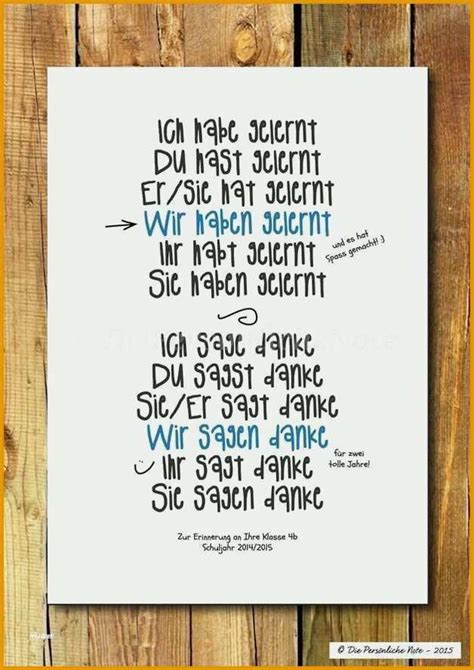 Ich habe gelernt
Du hast gelernt
Er/Sie hat gelernt
Wir haben gelernt
und es hat
Spass gemacht! :)
Ihr habt gelernt
Sie haben gelernt
Ich sage danke
Du sagst danke
Sie/Er sagt danke
Wir sagen danke
für zwei
tolle Jahre!
Ihr sagt danke
Sie sagen danke
Zur Erinnerung an Ihre Klasse 4b
Schuljahr 2014/2015
© Die Persönliche Note - 2015